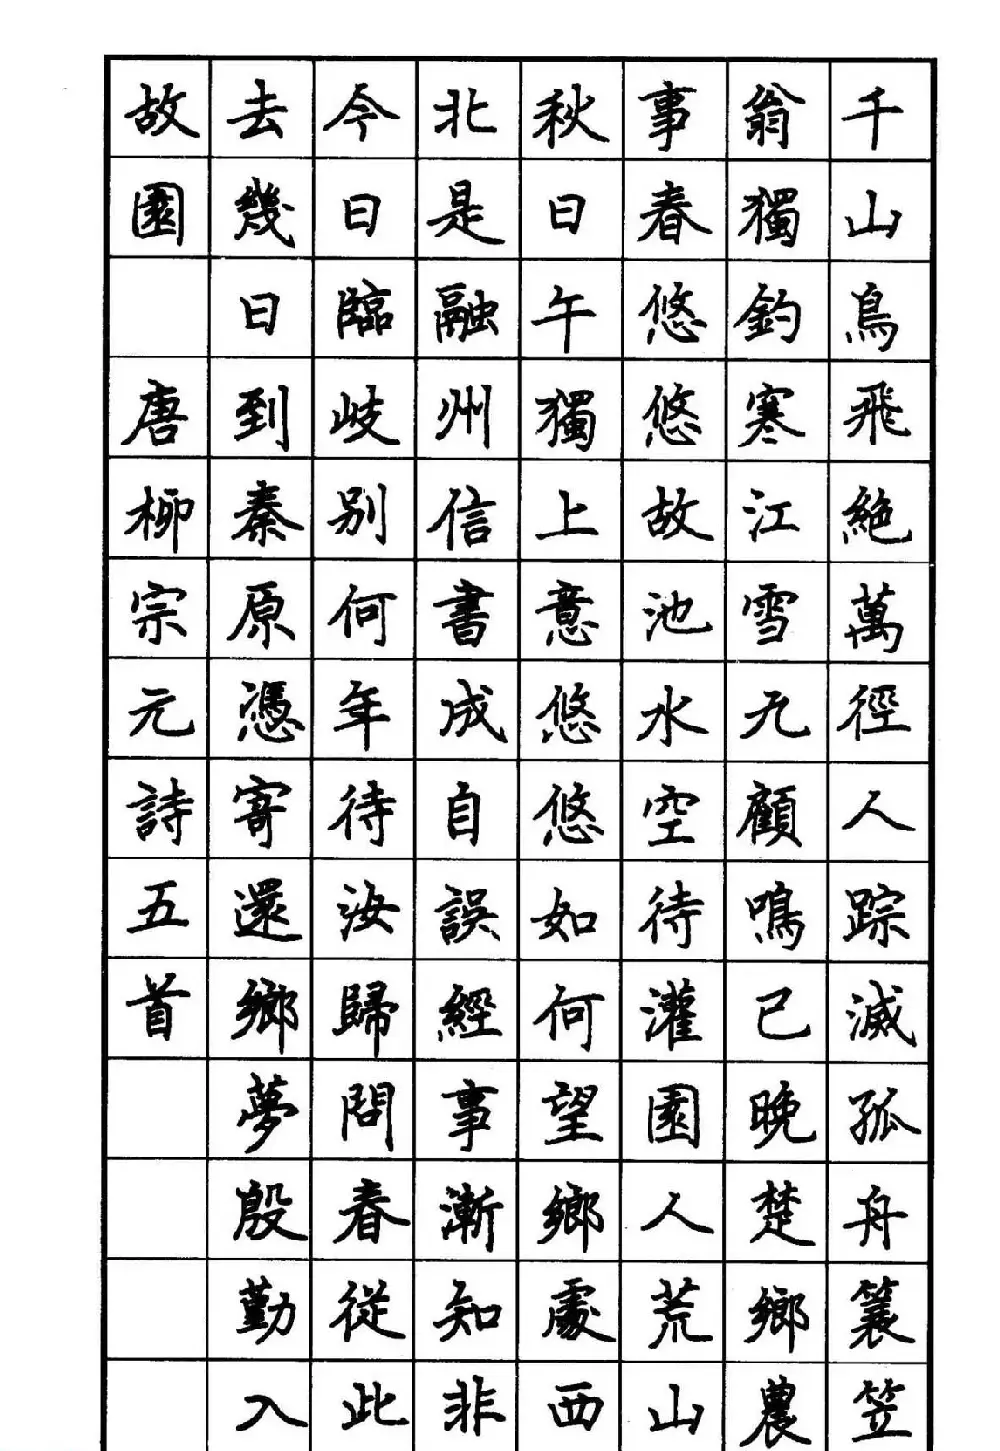 千山鳥飛絕萬徑人踪滅孤舟簑笠
翁獨釣寒江雪九顧鳴已晚楚鄉農
事春悠悠故池水空待灌園人荒山
秋日午獨上意悠悠如何望鄉處西
北是融州信書成自誤經事漸知非
今日臨岐別何年待汝歸問春從此
去幾日到秦原憑寄還鄉夢殷勤入
故園 唐柳宗元詩五首